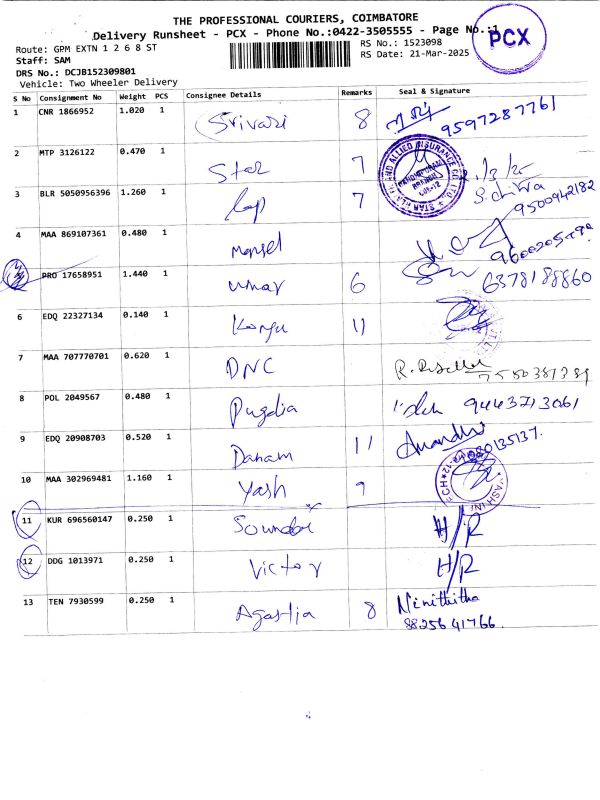 THE PROFESSIONAL COURIERS, COIMBATORE
Delivery Runsheet - PCX - Phone No.:0422-3505555 - Page No.:1
PCX
Route: GPM EXTN 1 2 6 8 ST
RS No.: 1523098
Staff: SAM
RS Date: 21-Mar-2025
DRS No.: DCJB152309801
Vehicle: Two Wheeler Delivery
S No Consignment No Weight PCS Consignee Details Remarks Seal & Signature
1 CNR 1866952 1.020 1 Srivari 8 9597287761
2 MTP 3126122 0.470 1 Star 7
3 BLR 5050956396 1.260 1 7 9500942182
4 MAA 869107361 0.480 1
PRO 17658951 1.440 1 6 6378188860
6 EDQ 22327134 0.140 1 Kongu 11
7 MAA 707770701 0.620 1 DNC
8 POL 2049567 0.480 1 9443713061
9 EDQ 20908703 0.520 1 Danam 11
10 MAA 302969481 1.160 1 Yash 9
11 KUR 696560147 0.250 1 H/R
12 DDG 1013971 0.250 1 Victor H/R
13 TEN 7930599 0.250 1 8 Ninithitha
8825641766.